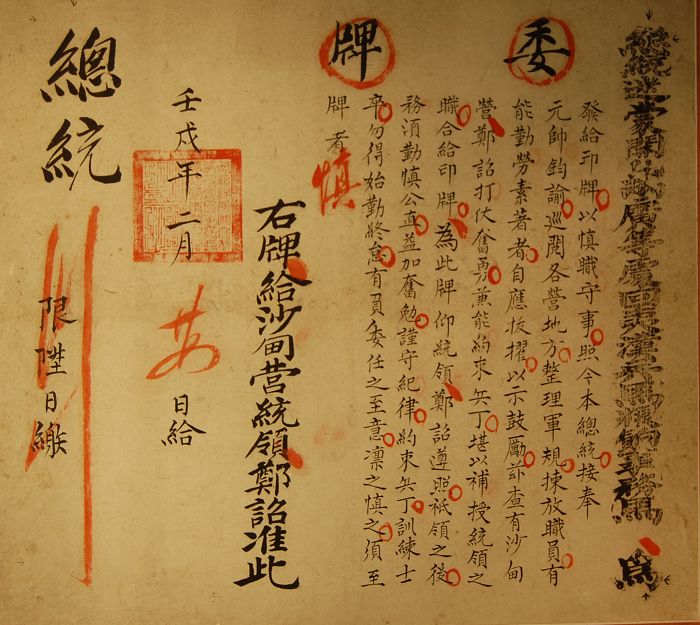 委牌
總統
為
發給印牌以慎職守事照今本總統接奉
元帥鈞諭巡閱各營地方整理軍規揀放職員有
能勤勞素著者自應拔擢以示鼓勵茲查有沙甸
營鄭詔打仗奮勇兼能約束兵丁堪以補授統領之
職合給印牌為此牌仰統領鄭詔遵照祗領之後
務須勤慎公直益加奮勉謹守紀律約束兵丁訓練士
卒勿得始勤終怠有負委任之至意凜之慎之須至
牌者
慎
右牌給沙甸營統領鄭詔准此
壬戌年二月 日給
總統
限陞日繳